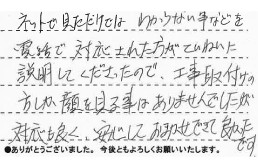 ネットで見ただけでは わからない事などを
電話で 対応された方がていねいに
説明してくださったので、工事取付けの
方しか顔を見る事はありませんでしたが
対応も良く、安心しておまかせできて良かった
です
●ありがとうございました。今後ともよろしくお願いいたします。